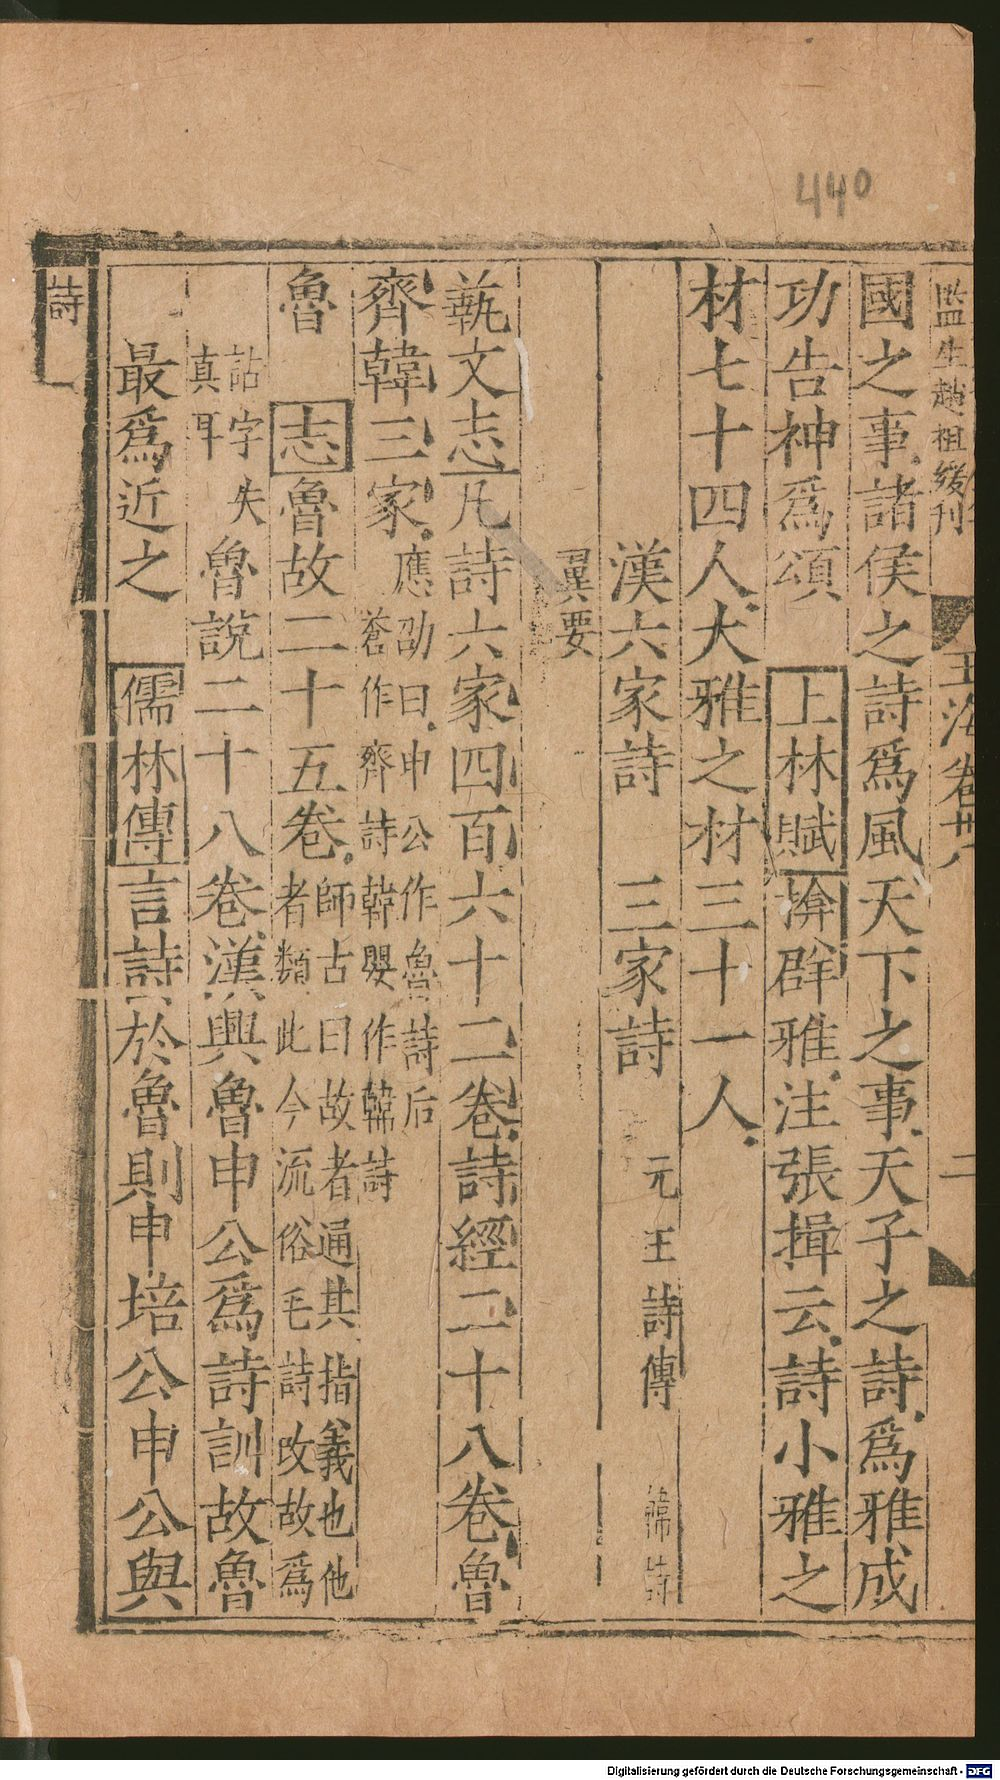 440
監生趙祖發刊
玉海卷卅八
二
國之事諸侯之詩爲風天下之事天子之詩爲雅成
功告神爲頌 上林賦揜群雅注張揖云詩小雅之
材七十四人大雅之材三十一人
漢六家詩 三家詩 元王詩傳 韓詩
翼要
蓺文志凡詩六家四百六十二卷詩經二十八卷魯
齊韓三家應劭曰申公作魯詩后蒼作齊詩韓嬰作韓詩
魯 志魯故二十五卷師古曰故者通其指義也他者類此今流俗毛詩改故爲
詁字失真耳魯說二十八卷漢興魯申公爲詩訓故魯
最爲近之 儒林傳言詩於魯則申培公申公與
詩
Digitalisierung gefördert durch die Deutsche Forschungsgemeinschaft - DFG